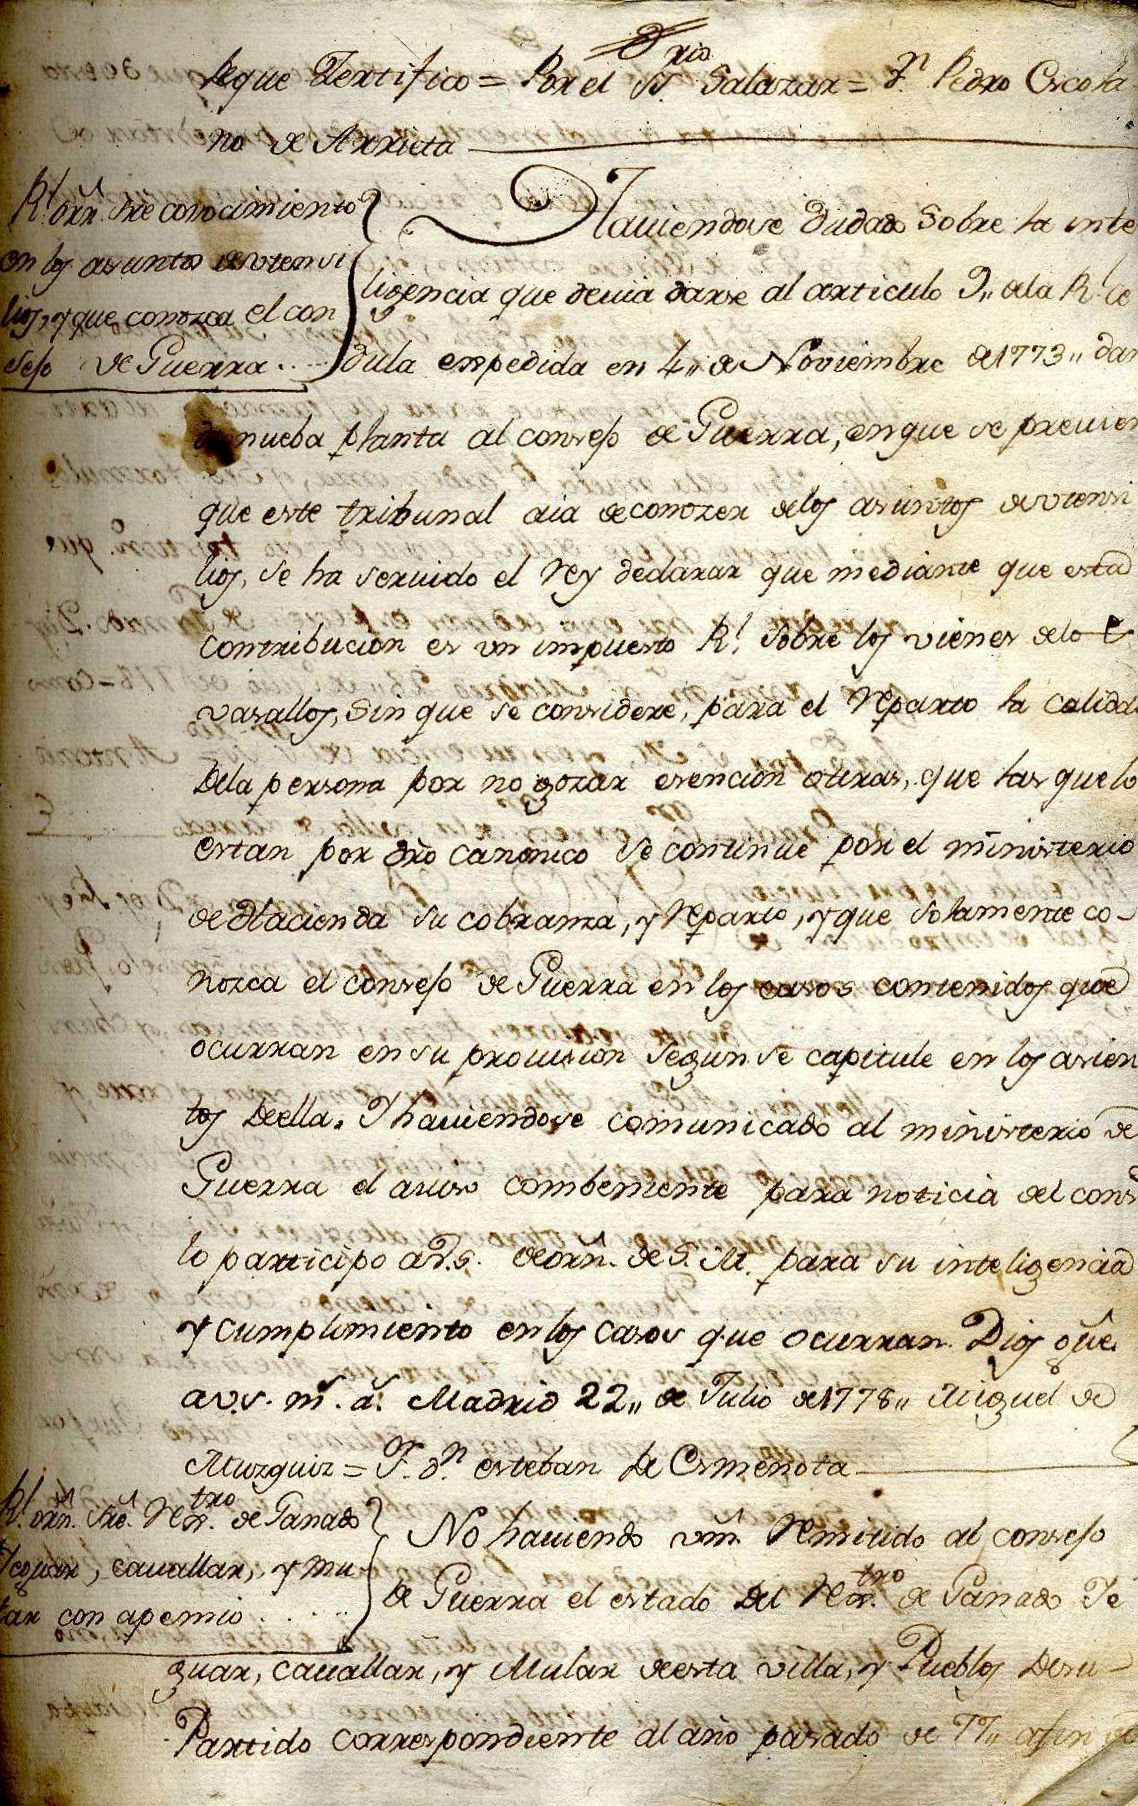 que Zertifico = Por el Sr. Salazar = Dn. Pedro Escola
no de Arrieta
Rl. orn. sre conocimiento
en los asuntos de utensi
lios, y que conozca el con
sejo de Guerra....
Haviendose dudado sobre la inte
ligencia que devia darse al articulo 9,, de la Rl. ce
dula expedida en 4,, de Noviembre de 1773,, dan
do nueba planta al consejo de Guerra, en que se previen
que este tribunal aia de conozer de los asuntos de utensi
lios, se ha servido el Rey declarar que mediante que esta
contribucion es un impuesto Rl. sobre los vienes de lo
vasallos, sin que se considere, para el reparto la calida
de la persona por no gozar esencion otras, que las que lo
estan por dro canonico se continue por el ministerio
de Hacienda su cobranza, y reparto, y que solamente co-
nozca el consejo de Guerra en los casos contenidos que
ocurran en su provision segun se capitule en los asien
tos de ella. Y haviendose comunicado al ministerio de
Guerra el aviso combeniente para noticia del cons
lo participo a V.S. de orn. de S. M. para su inteligencia
y cumplimiento en los casos que ocurran. Dios gue.
a V.S. ms. as. Madrid 22,, de Julio de 1778,, Miguel de
Muzquiz = Sor. Dn. esteban de Esmenota
Rl. orn. sre. Rextro de Ganado
Yeguar, cavallar, y mu
lar con apemio....
No haviendo vm. remitido al consejo
de Guerra el estado del Rextro de Ganado Ye
guar, cavallar, y Mular de esta villa, y Pueblos de su
Partido correspondiente al año pasado de 77,, a fin de